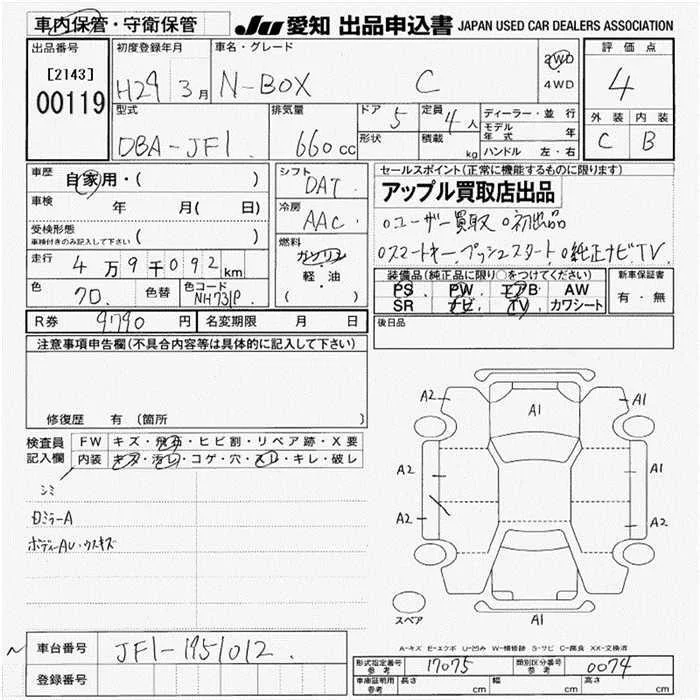 車内保管・守衛保管
JU 愛知 出品申込書 JAPAN USED CAR DEALERS ASSOCIATION
出品番号
[2143]
00119
初度登録年月
H29 3月
車名・グレード
N-BOX C
2WD
4WD
評価点
4
外装 内装
C B
型式
DBA-JF1.
排気量
660cc
ドア 5
形状
定員 4人
積載 kg
ディーラー・並行
モデル年式 年
ハンドル 左・右
車歴
自家用・( )
車検 年 月( 日)
受検形態
車検付きのみ記入して下さい ( )
走行
4万9千092km
色
クロ.
色替
色コード
NH731P.
R券 9790 円 名変期限 月 日
シフト
DAT.
冷房
AAC.
燃料
ガソリン
軽・油
( )
セールスポイント(正常に機能するものに限ります)
アップル買取店出品
○ユーザー買取 ○初出品
○スマートキー.プッシュスタート.○純正ナビTV.
装備品(純正品に限り○をつけてください)
PS PW エアB AW
SR ナビ TV カワシート
新車保証書
有・無
後日品
注意事項申告欄(不具合内容等は具体的に記入して下さい)
修復歴 有 (箇所 )
検査員記入欄
FW キズ・飛石・ヒビ割・リペア跡・X要
内装 キズ・汚レ・コゲ・穴・スレ・キレ・破レ
シミ
ボディーAU・ウスキズ
A2 A1 A1
A2 A1
A2 A2
スペア A1
A-キズ E-エクボ U-凹み W-補修跡 S-サビ C-腐食 XX-交換済
車台番号 JF1-1951012
登録番号
形式指定番号 参考 17075 類別区分番号 参考 0074
車庫証明用 参考 長さ cm 幅 cm 高さ cm